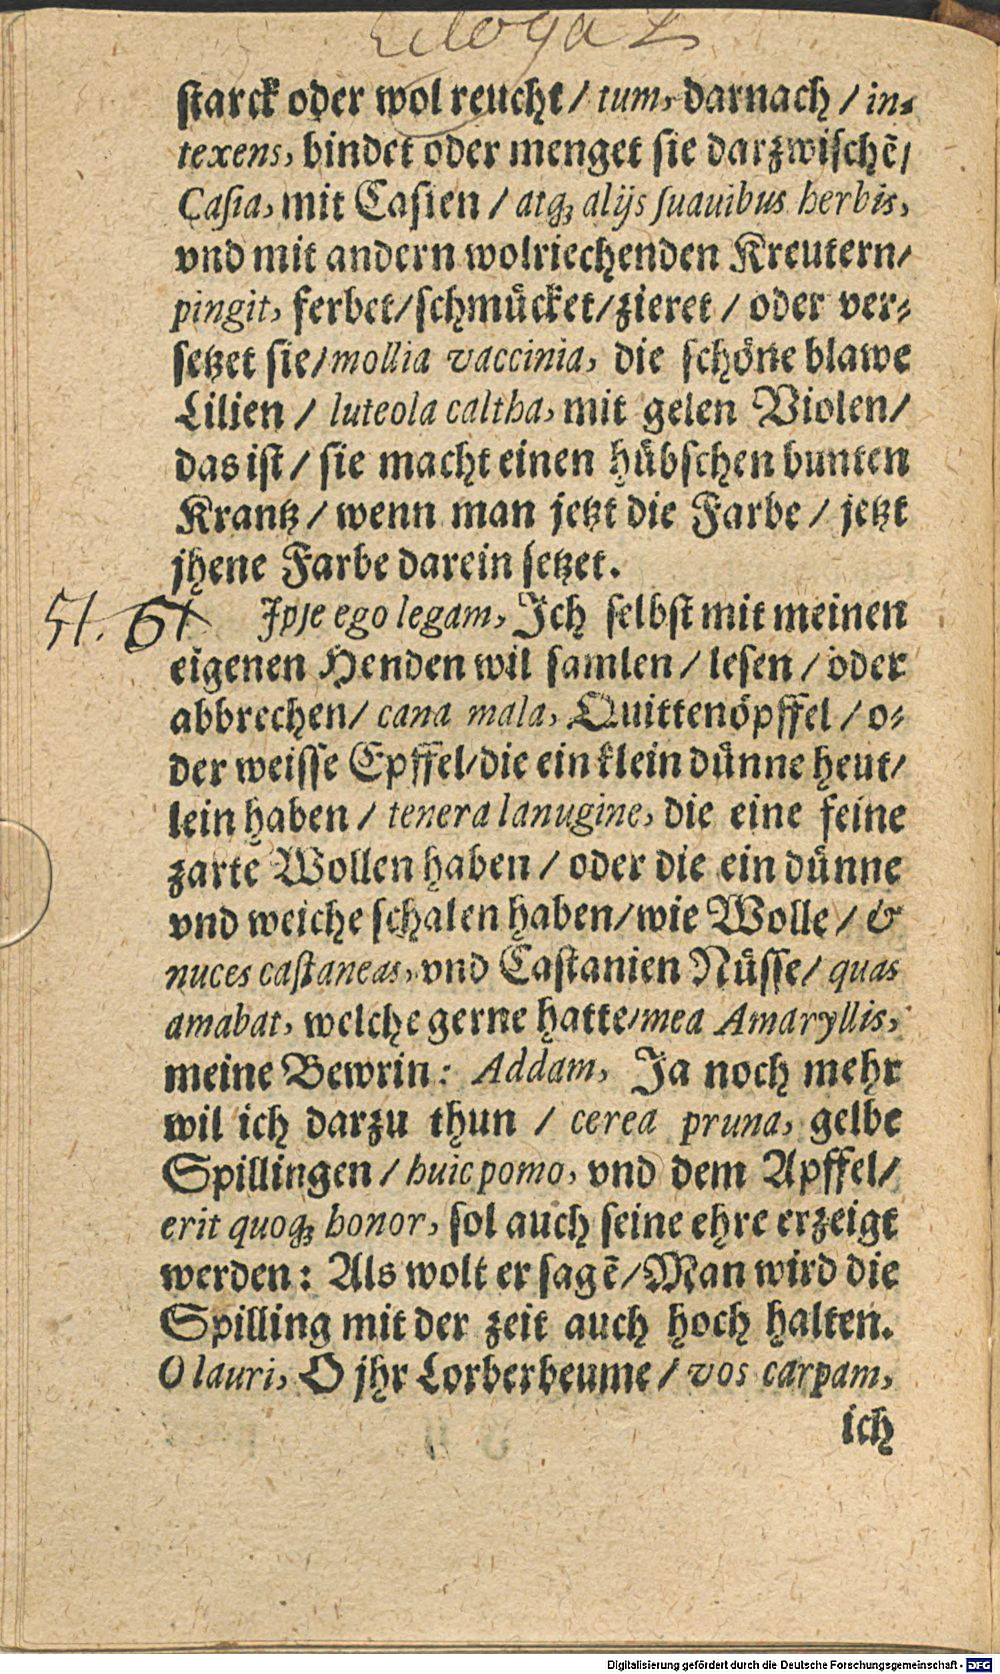 Ecloga 2
starck oder wol reucht / tum, darnach / in-
texens, bindet oder menget sie darzwischẽ /
Casia, mit Casien / atq́; alijs suauibus herbis,
vnd mit andern wolriechenden Kreutern /
pingit, ferbet / schmuͤcket / zieret / oder ver-
setzet sie / mollia vaccinia, die schoͤne blawe
Lilien / luteola caltha, mit gelen Violen /
das ist / sie macht einen huͤbschen bunten
Krantz / wenn man jetzt die Farbe / jetzt
jhene Farbe darein setzet.
51. 51 Ipse ego legam, Ich selbst mit meinen
eigenen Henden wil samlen / lesen / oder
abbrechen / cana mala, Quittenoͤpffel / o-
der weisse Epffel / die ein klein duͤnne heut /
lein haben / tenera lanugine, die eine feine
zarte Wollen haben / oder die ein duͤnne
vnd weiche schalen haben / wie Wolle / &
nuces castaneas, vnd Castanien Nuͤsse / quas
amabat, welche gerne hatte / mea Amaryllis,
meine Bewrin: Addam, Ja noch mehr
wil ich darzu thun / cerea pruna, gelbe
Spillingen / huic pomo, vnd dem Apffel /
erit quoq́; honor, sol auch seine ehre erzeigt
werden: Als wolt er sagẽ / Man wird die
Spilling mit der zeit auch hoch halten.
O lauri, O jhr Lorberbeume / vos carpam,
ich
Digitalisierung gefördert durch die Deutsche Forschungsgemeinschaft - DFG